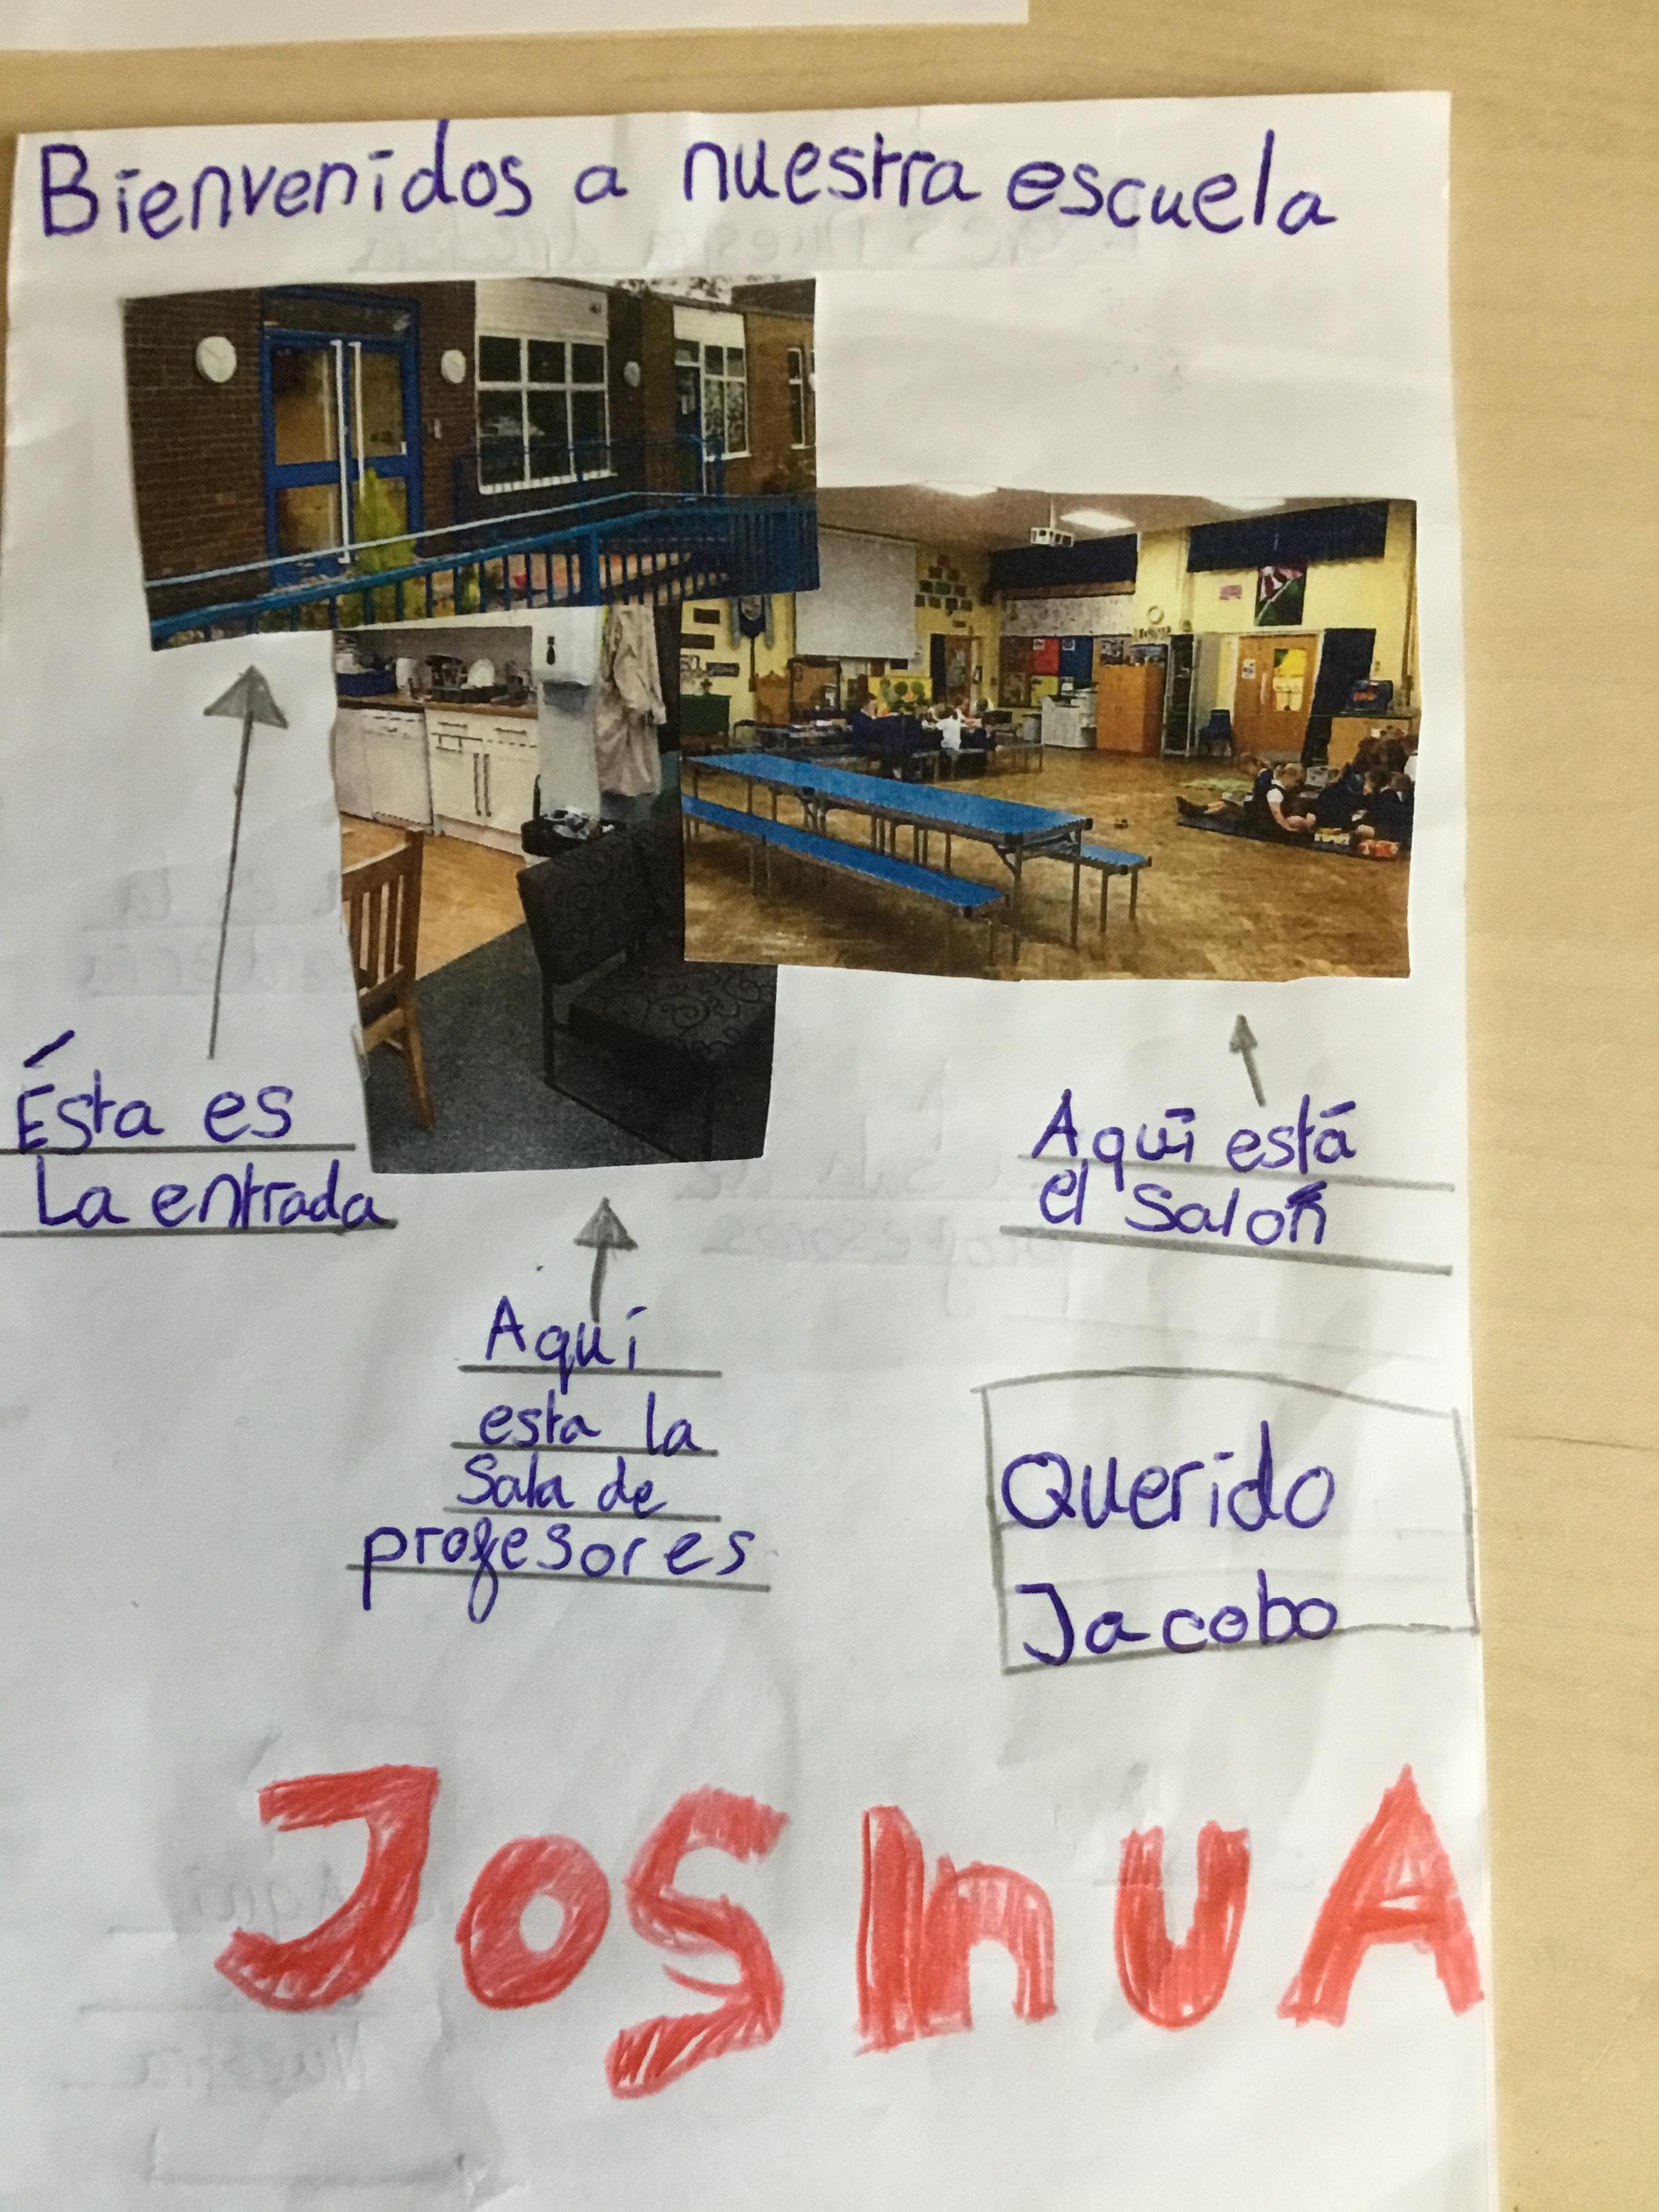 Bienvenidos a nuestra escuela
Ésta es
La entrada
Aquí está
el Salón
Aquí
esta la
Sala de
profesores
Querido
Jacobo
JoShUA